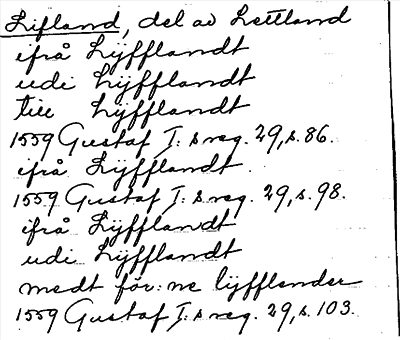 Lifland, del av Lettland
ifrå Lÿfflandt
udi Lÿfflandt
till Lÿfflandt
1559 Gustaf I:s reg. 29, s. 86.
ifrå Lÿfflandt.
1559 Gustaf I:s reg. 29, s. 98.
ifrå Lÿfflandt
udi Lÿfflandt
medt för:ne lÿfflender
1559 Gustaf I:s reg. 29, s. 103.